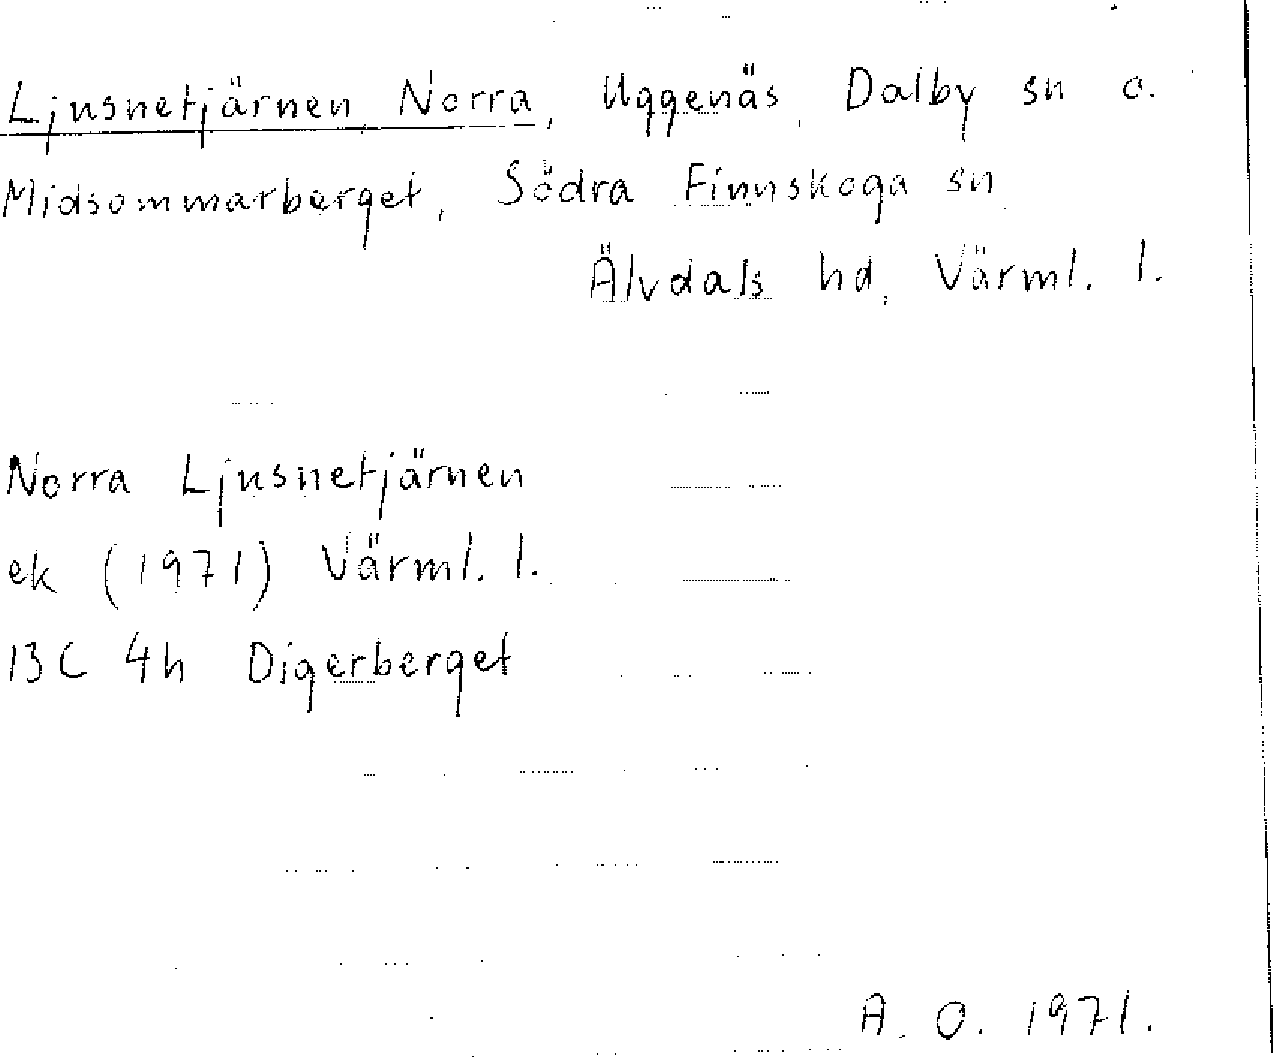 Ljusnetjärnen, Norra, Uggenäs, Dalby sn o.
Midsommarberget, Södra Finnskoga sn
Älvdals hd, Värml. l.
Norra Ljusnetjärnen
ek (1971) Värml. l.
13C 4h Digerberget
A. O. 1971.